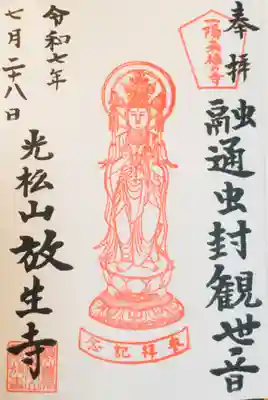 奉拝
一陽来復の寺
融通虫封観世音
奉拝記念
光松山放生寺
令和七年
七月二十八日